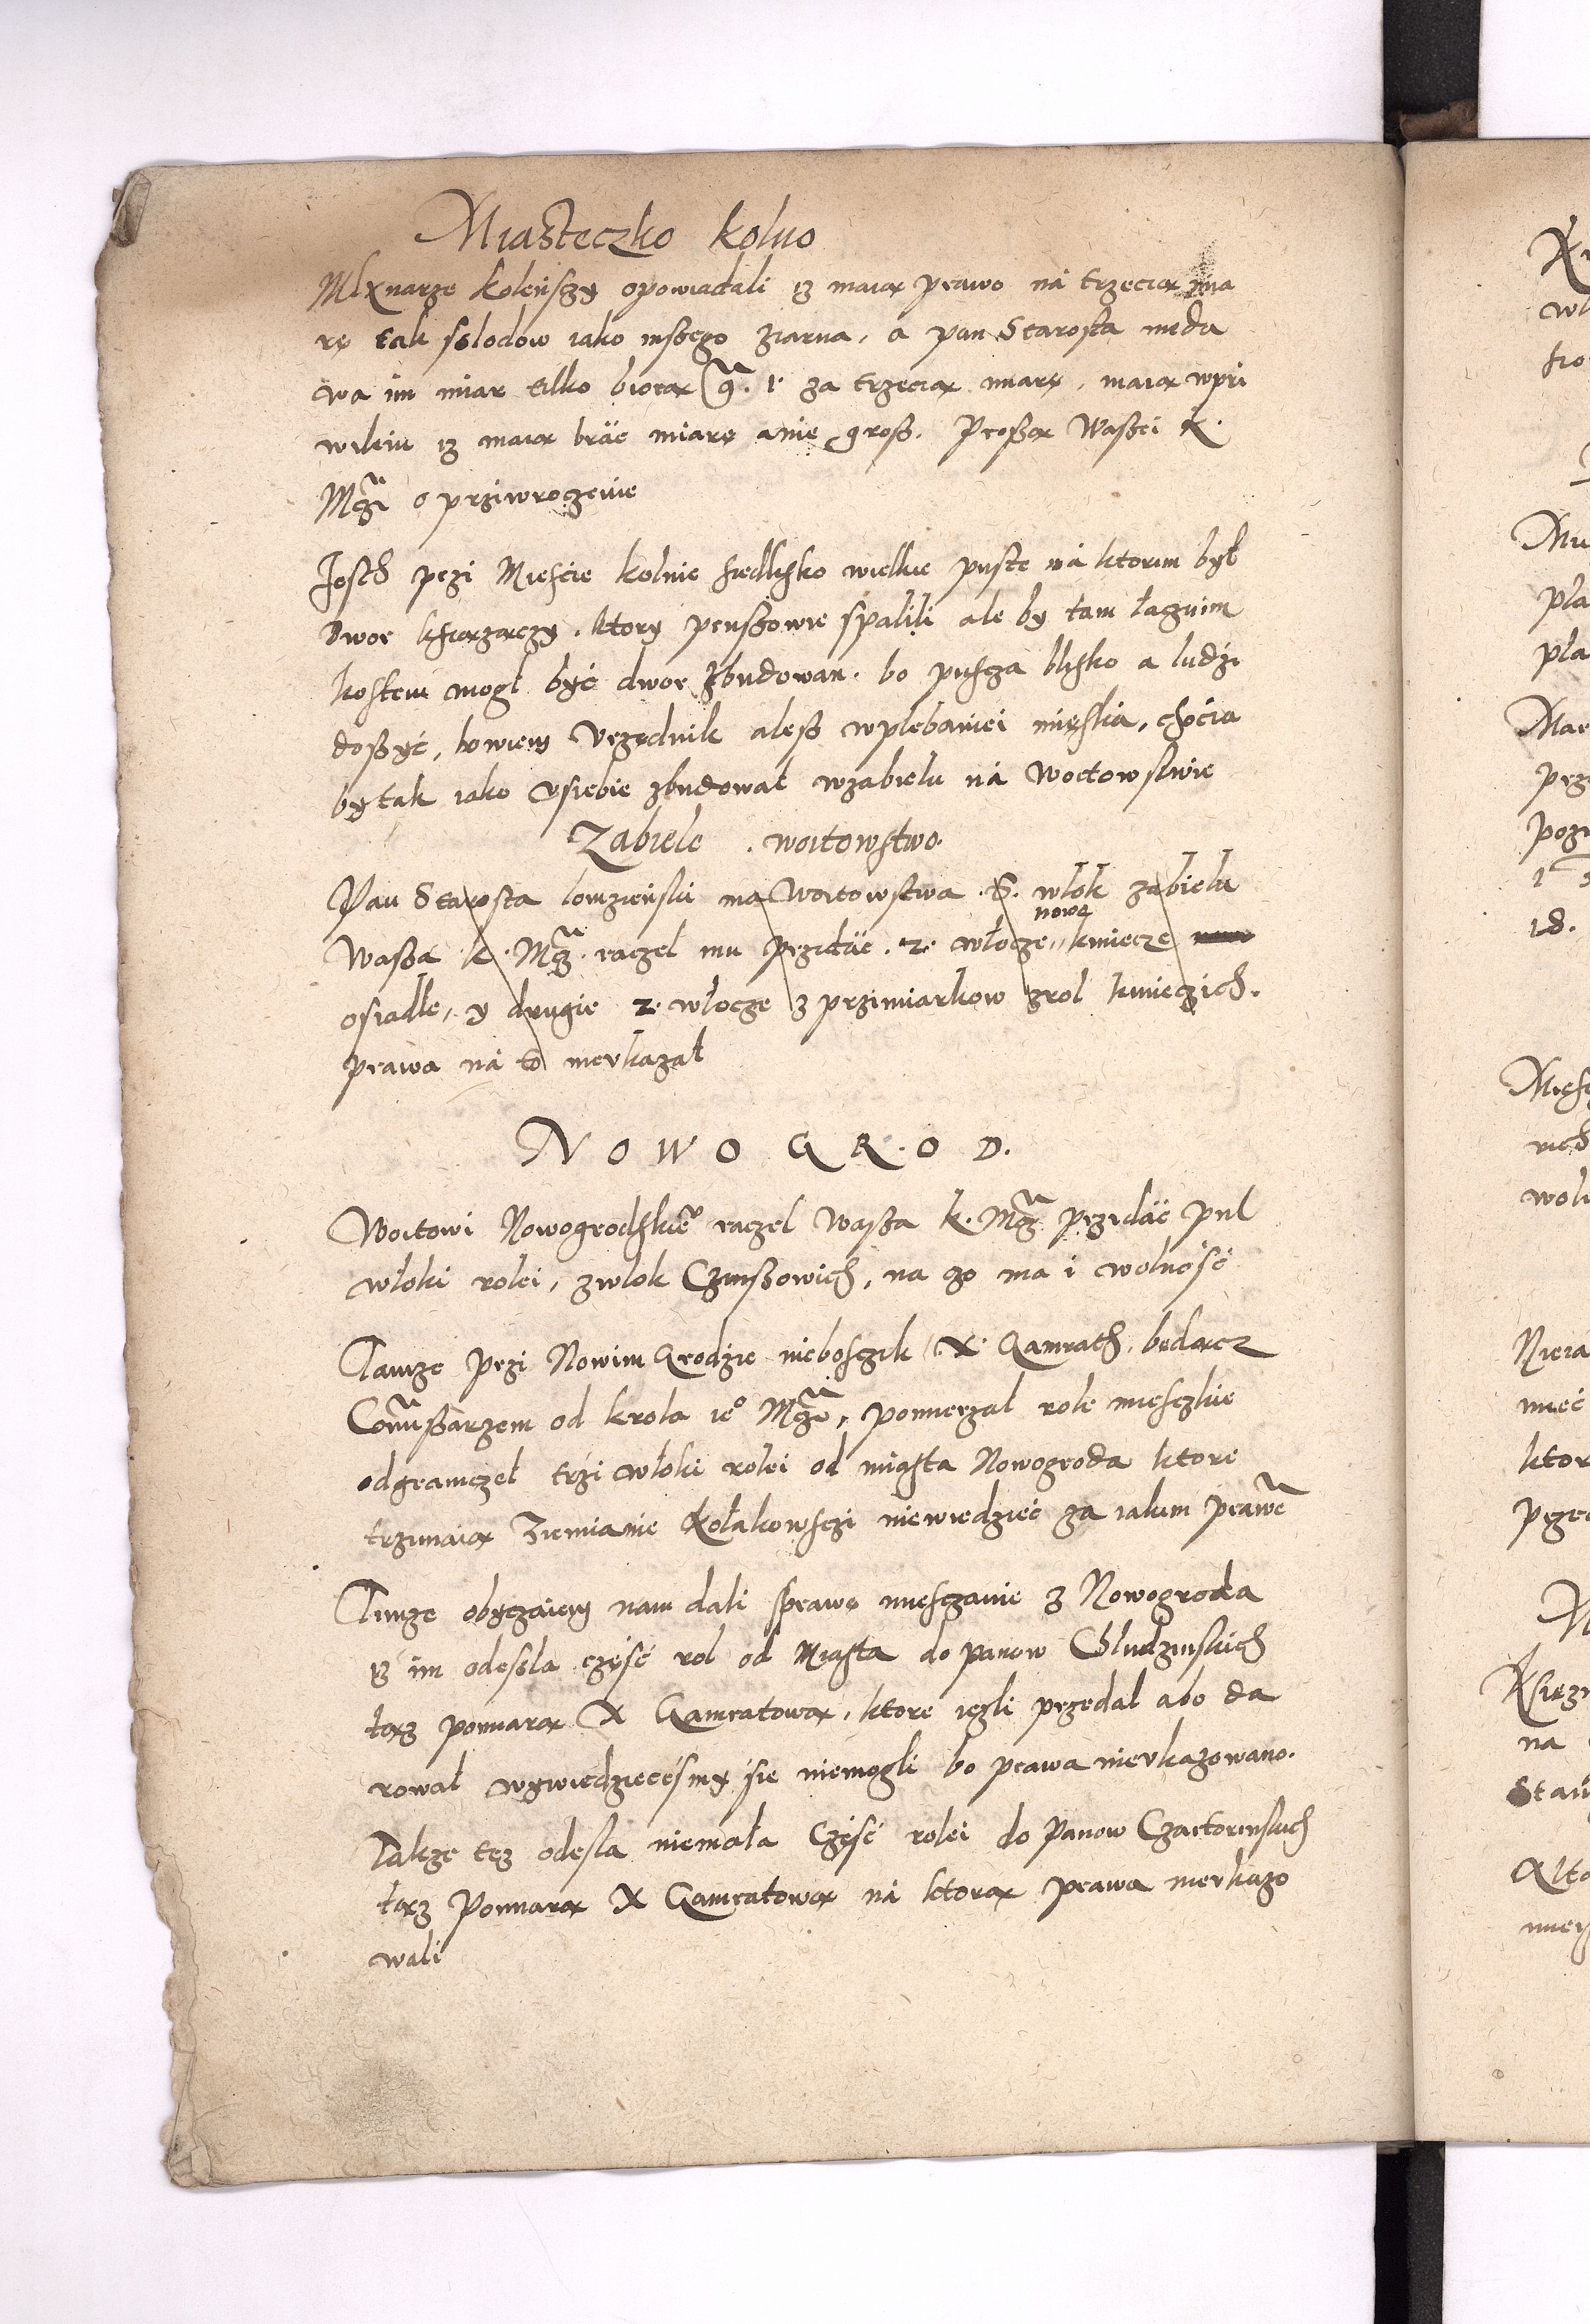 Miasteczko Kolno
Mlynarze kolenszy opowiadali iz maią prawo ná trzecią mia
rę tak slodow iako inszego ziarna, a pan Starosta nieda
wa im miar tilko biorą g. 1. za trzecią miarę, maią wpri
wileiu iz maią bráć miarę a nie grosz. Proszą Waszei K.
Mczi o prziwroczenie
Jesth przi Mieście Kolnie siedlisko wielkie puste ná ktorim był
Dwor ksiązączy. ktory pruszowie spalili ale by tam łacznim
kostem mogł być dwor zbudowan. bo puscza blisko a ludzi
doszyć, bowiem Vrzednik alesz wplebaniei mięska, chocia
by tak iako vsiebie zbudował wzabielu ná Woitowstwie
Zabiele. woitowstwo.
Pan Starosta lomzieński ma Woitowstwa 8. wlok zabielu
nowe
Wasza K. Mcz. raczel mu przidać. 2. włocze, kmiecze
osiadłe, y drugie 2. włocze z przimiarkow zrol kmieczich.
prawa ná to nievkazał
NOWOGROD.
Woitowi Nowogrodskiem raczel Wasza K. Mcz przidáć pul
włoki rolei, zwlok Czinszowich, na czo ma i wolność
Tamze przi Nowim Grodzie niebosczik X. Gamrath, będącz
Comissarzem od krola ieo Mczi, pomierzal role miesczkie
odgraniczeł trzi włoki rolei od miasta Nowogroda ktore
trzimaią Ziemianie Kołakowsczi niewiedzieć za iakim prawem
Timze obyczaiem nam dali sprawę miesczanie z Nowogroda
iz im odeszla część rol od Miasta do panow Chludzinskich
tęz pomiarą X Gamratową, ktore iezli przedal abo da
rował wywiedziecésmy sie niemogli bo prawa nievkazowano.
Takze tez odesla niemała część rolei do Panow Czartorinskich
tąz Pomiarą X Gamratową ná ktorą prawa nievkazo
wali